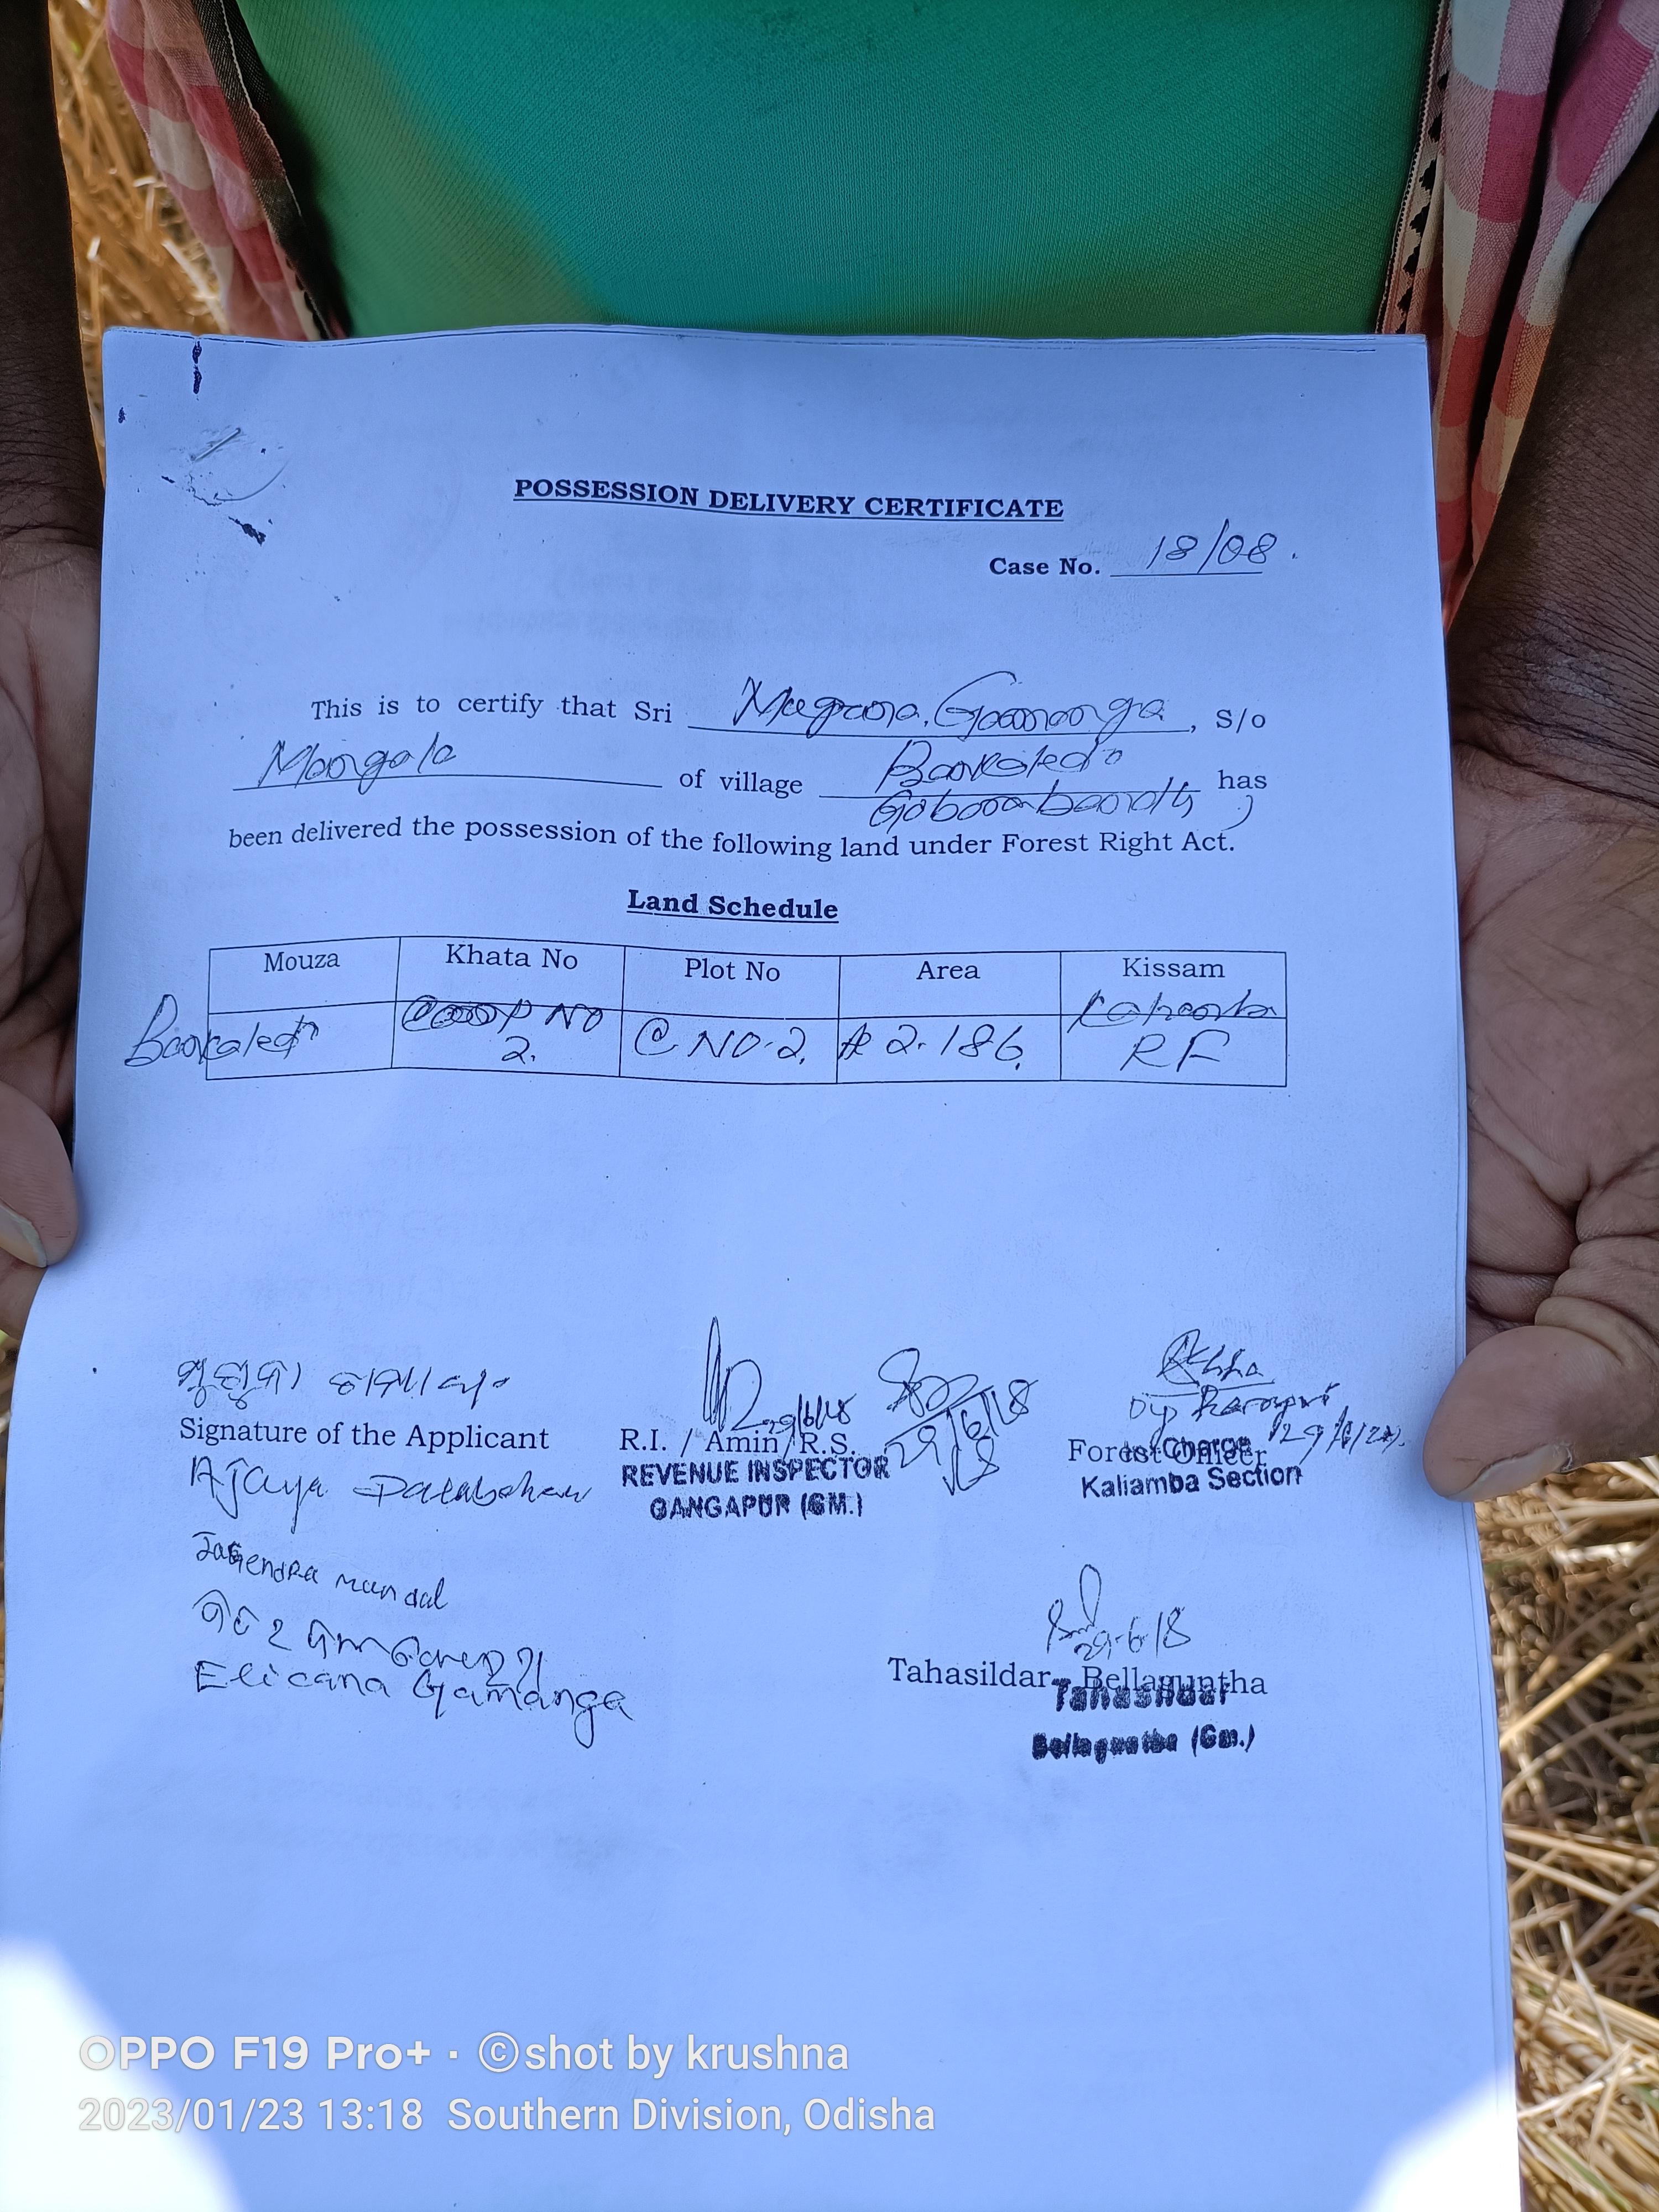 POSSESSION DELIVERY CERTIFICATE
Case No. 18/08.
This is to certify that Sri Gamanga, S/o
Mangala of village has
been delivered the possession of the following land under Forest Right Act.
Land Schedule
Mouza Khata No Plot No Area Kissam
NO 2. C NO-2. 2.186. RF
29/6/18
29/6/18
Signature of the Applicant R.I. / Amin/R.S. Forest Officer
REVENUE INSPECTOR
GANGAPUR (GM.)
Charge
Kaliamba Section
Ajaya
Jagendra mandal
Elicana Gamanga
29-6-18
Tahasildar, Bellaguntha
Tahasildar
Bellaguntha (Gm.)
OPPO F19 Pro+ · ©shot by krushna
2023/01/23 13:18 Southern Division, Odisha